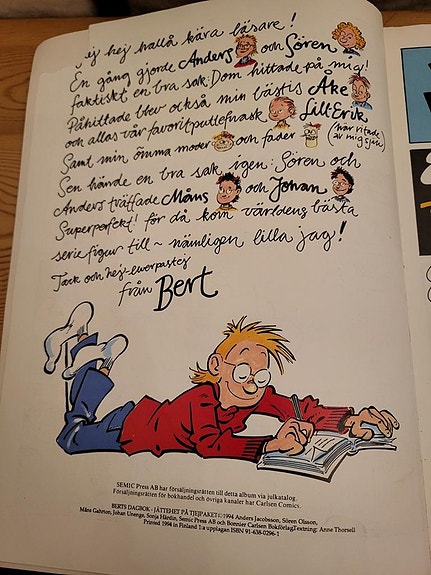 ej hej hallå kära läsare!
En gång gjorde Anders och Sören
faktiskt en bra sak: Dom hittade på mig!
Påhittade blev också min bästis Åke
och allas vår favoritputtefnask LillErik
Samt min ömma moder och fader (här ritade av mig själv)
Sen hände en bra sak igen: Sören och
Anders träffade Måns och Johan
Superperfekt! för då kom världens bästa
serie figur till ~ nämligen lilla jag!
Tack och hej - leverpastej
från Bert
SEMIC Press AB har försäljningsrätten till detta album via julkatalog.
Försäljningsrätten för bokhandel och övriga kanaler har Carlsen Comics.
BERTS DAGBOK: JÄTTEHET PÅ TJEJPAKET©1994 Anders Jacobsson, Sören Olsson,
Måns Gahrton, Johan Unenge, Sonja Härdin, Semic Press AB och Bonnier Carlsen BokförlagTextning: Anne Thorsell
Printed 1994 in Finland 1:a upplagan ISBN 91-638-0296-1